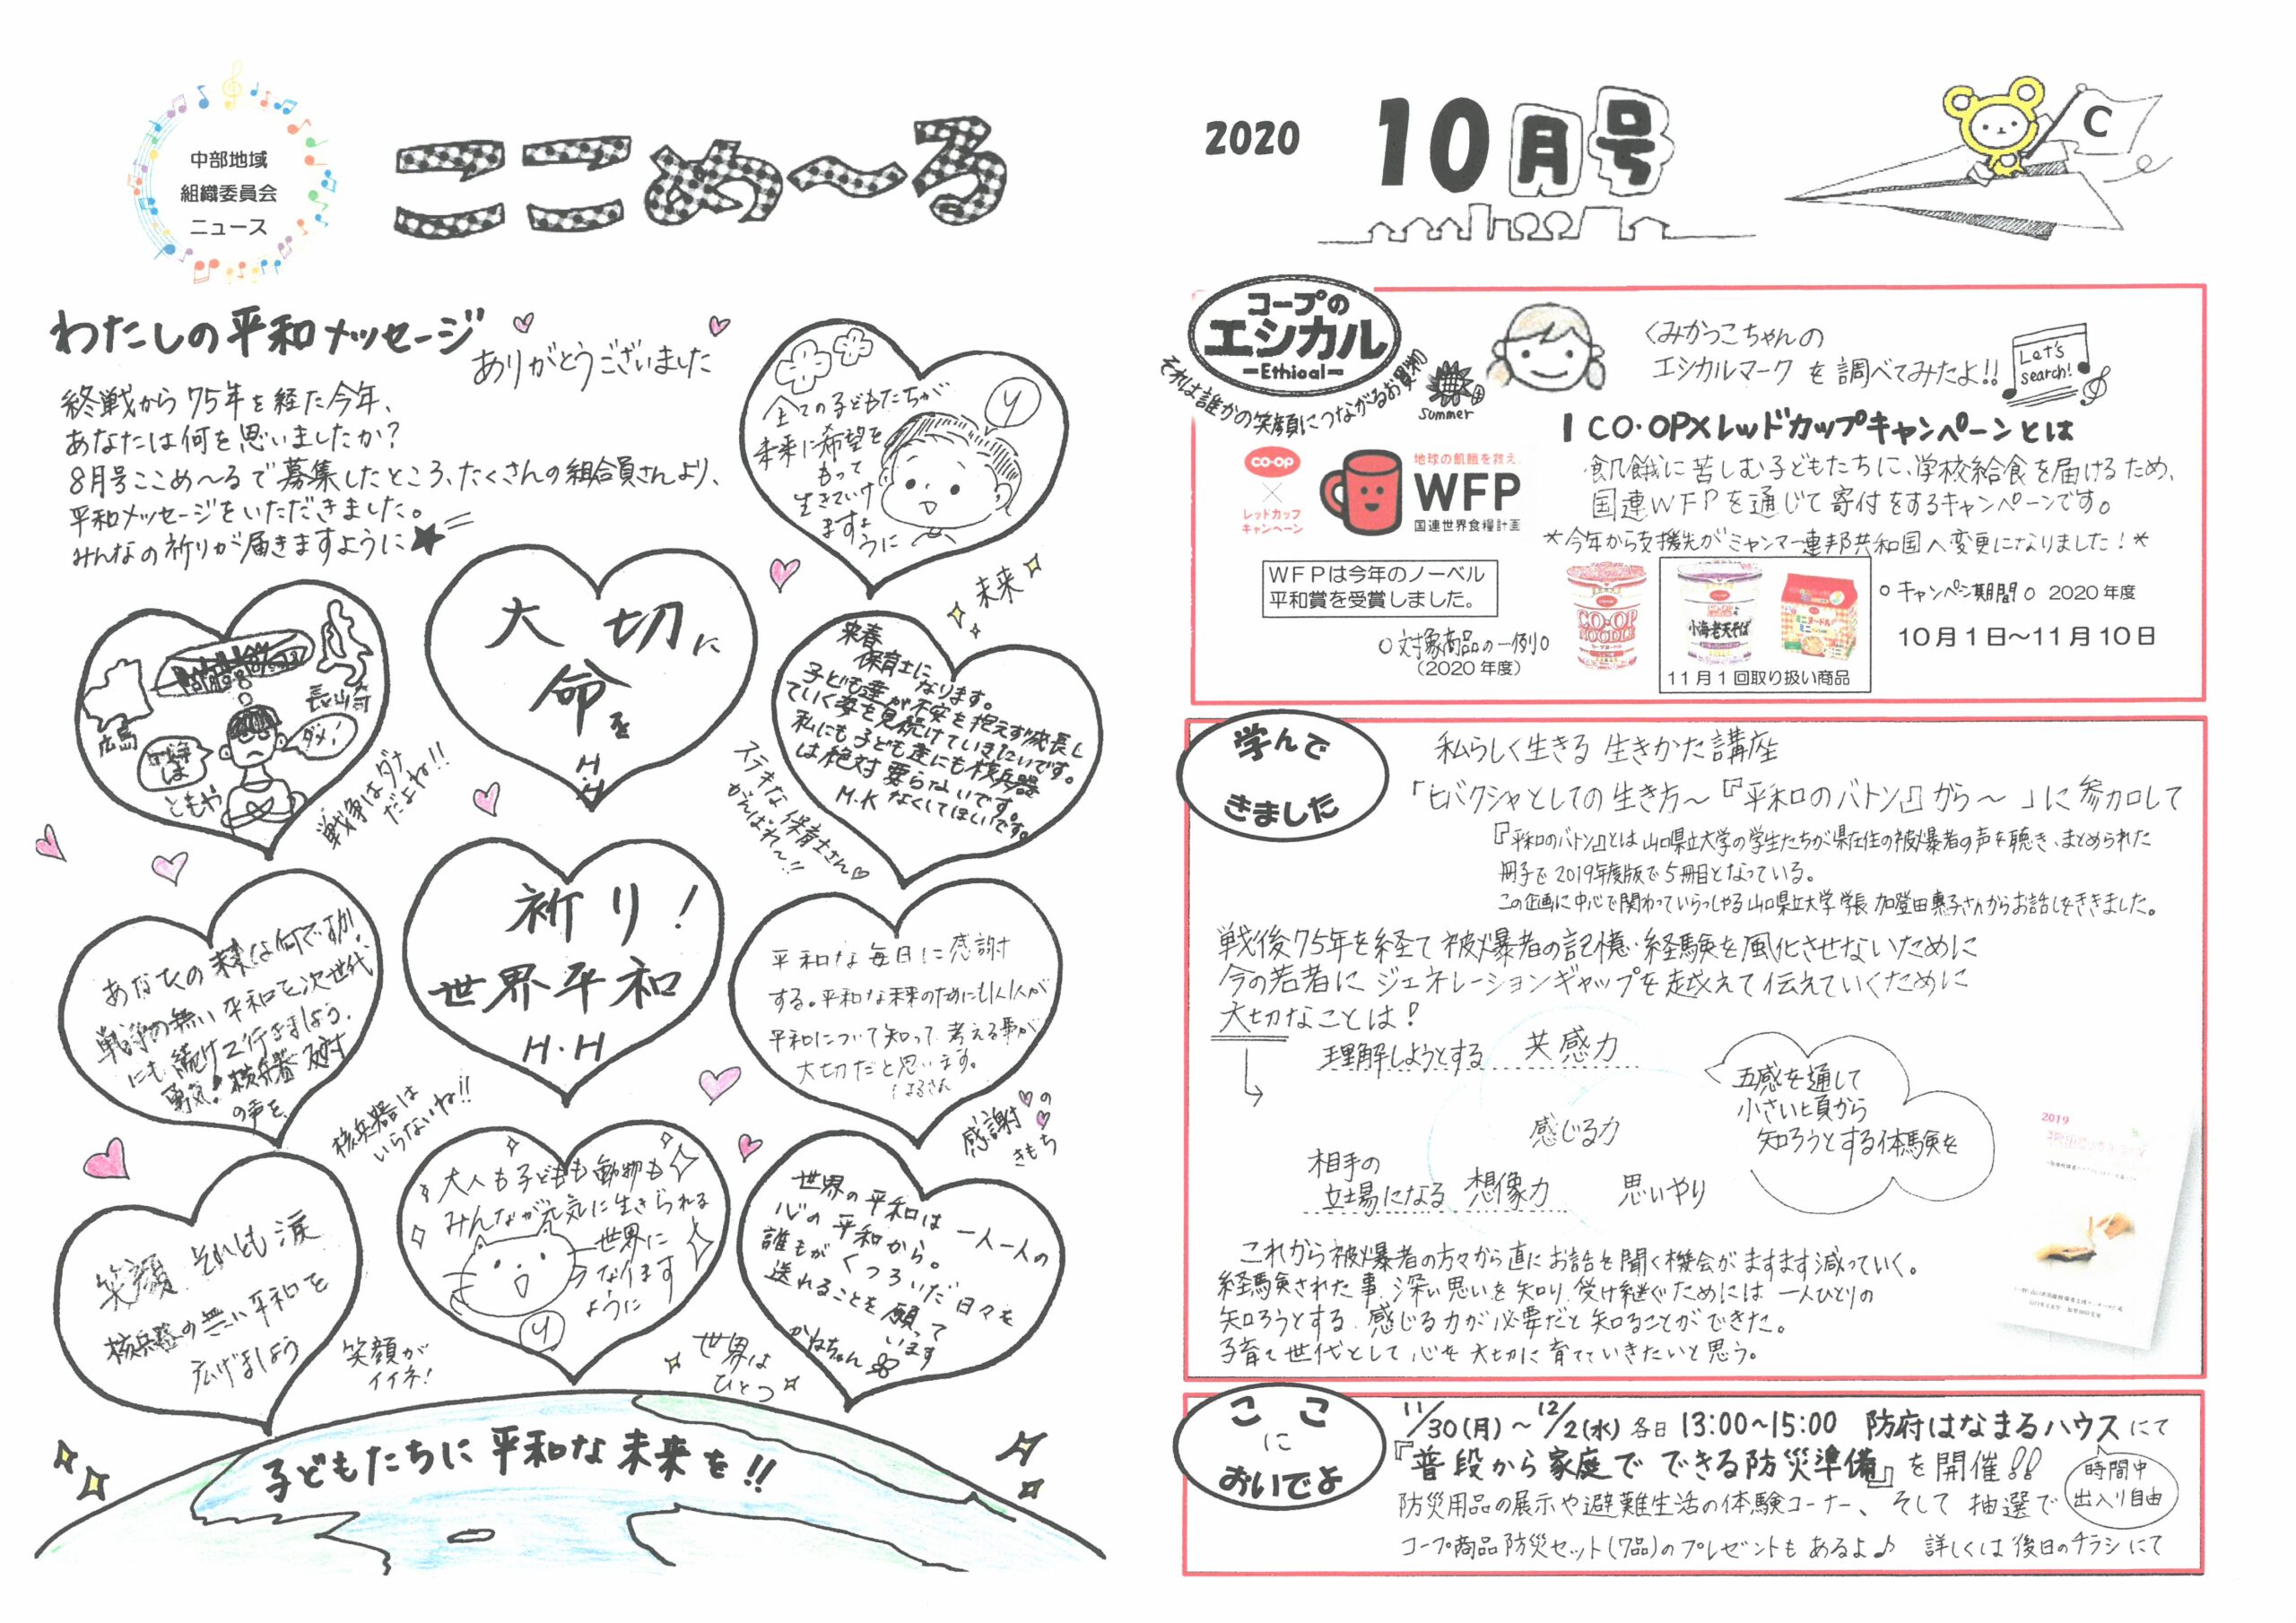 中部地域
組織委員会
ニュース
ここめ～る
2020
10月号
C
わたしの平和メッセージ
ありがとうございました
終戦から75年を経た今年、
あなたは何を思いましたか?
8月号ここめ～るで募集したところ、たくさんの組合員さんより、
平和メッセージをいただきました。
みんなの祈りが届きますように
全ての子どもたちが
未来に希望を
もって
生きていけ
ますように
y
未来
広島
長崎
戦争
は
ダメ!
ともや
戦争はダメ
だよね!!
大切に
命を
H・H
来春
保育士になります。
子ども達が不安を抱えず成長し
ていく姿を見続けていきたいです。
私にも子ども達にも核兵器
は絶対要らないです。
M.K なくしてほしいです。
ステキな保育士さん♡
がんばれ～!!
あなたの未来は何ですか、
戦争の無い平和を次世代
にも続けて行きましょう。
勇気!核兵器反対
の声を
核兵器は
いらないね!!
祈り!
世界平和
H・H
平和な毎日に感謝
する。平和な未来のためにも1人1人が
平和について知って、考える事が
大切だと思います。
はるさん
感謝の
きもち
笑顔、それとも涙
核兵器の無い平和を
広げましょう
笑顔が
イイネ!
大人も子どもも動物も
みんなが元気に生きられる
世界に
なります
ように
y
世界の平和は一人一人の
心の平和から。
誰もがくつろいだ日々を
送れることを願って
います
かねちゃん
世界は
ひとつ
子どもたちに平和な未来を!!
コープの
エシカル
－Ethical－
それは誰かの笑顔につながるお買物
summer
くみかつこちゃんの
エシカルマークを調べてみたよ!!
Let's
search!
1 CO・OP×レッドカップキャンペーンとは
飢餓に苦しむ子どもたちに、学校給食を届けるため、
国連WFPを通じて寄付をするキャンペーンです。
*今年から支援先がミャンマー連邦共和国へ変更になりました!*
co-op
×
レッドカップ
キャンペーン
地球の飢餓を救え。
WFP
国連世界食糧計画
WFPは今年のノーベル
平和賞を受賞しました。
○対象商品の一例○
(2020年度)
CO・OP
NOODLE
小海老天そば
ミニヌードル
ミニ
11月1回取り扱い商品
○キャンペーン期間○ 2020年度
10月1日～11月10日
学んで
きました
私らしく生きる 生きかた講座
「ヒバクシャとしての生き方～『平和のバトン』から～」に参加して
『平和のバトン』とは山口県立大学の学生たちが県在住の被爆者の声を聴き、まとめられた
冊子で2019年度版で5冊目となっている。
この企画に中心で関わっていらっしゃる山口県立大学学長 加登田惠子さんからお話しをききました。
戦後75年を経て被爆者の記憶・経験を風化させないために
今の若者にジェネレーションギャップを越えて伝えていくために
大切なことは!
理解しようとする 共感力
感じる力
相手の
立場になる 想像力 思いやり
五感を通して
小さい頃から
知ろうとする体験を
2019
これから被爆者の方々から直にお話を聞く機会がますます減っていく。
経験された事、深い思いを知り、受け継ぐためには一人ひとりの
知ろうとする、感じる力が必要だと知ることができた。
子育て世代として心を大切に育てていきたいと思う。
ここ
に
おいでよ
11/30(月)～12/2(水) 各日 13:00~15:00 防府はなまるハウスにて
『普段から家庭でできる防災準備』を開催!!
時間中
出入り自由
防災用品の展示や避難生活の体験コーナー、そして抽選で
コープ商品防災セット(7品)のプレゼントもあるよ♪ 詳しくは後日のチラシにて